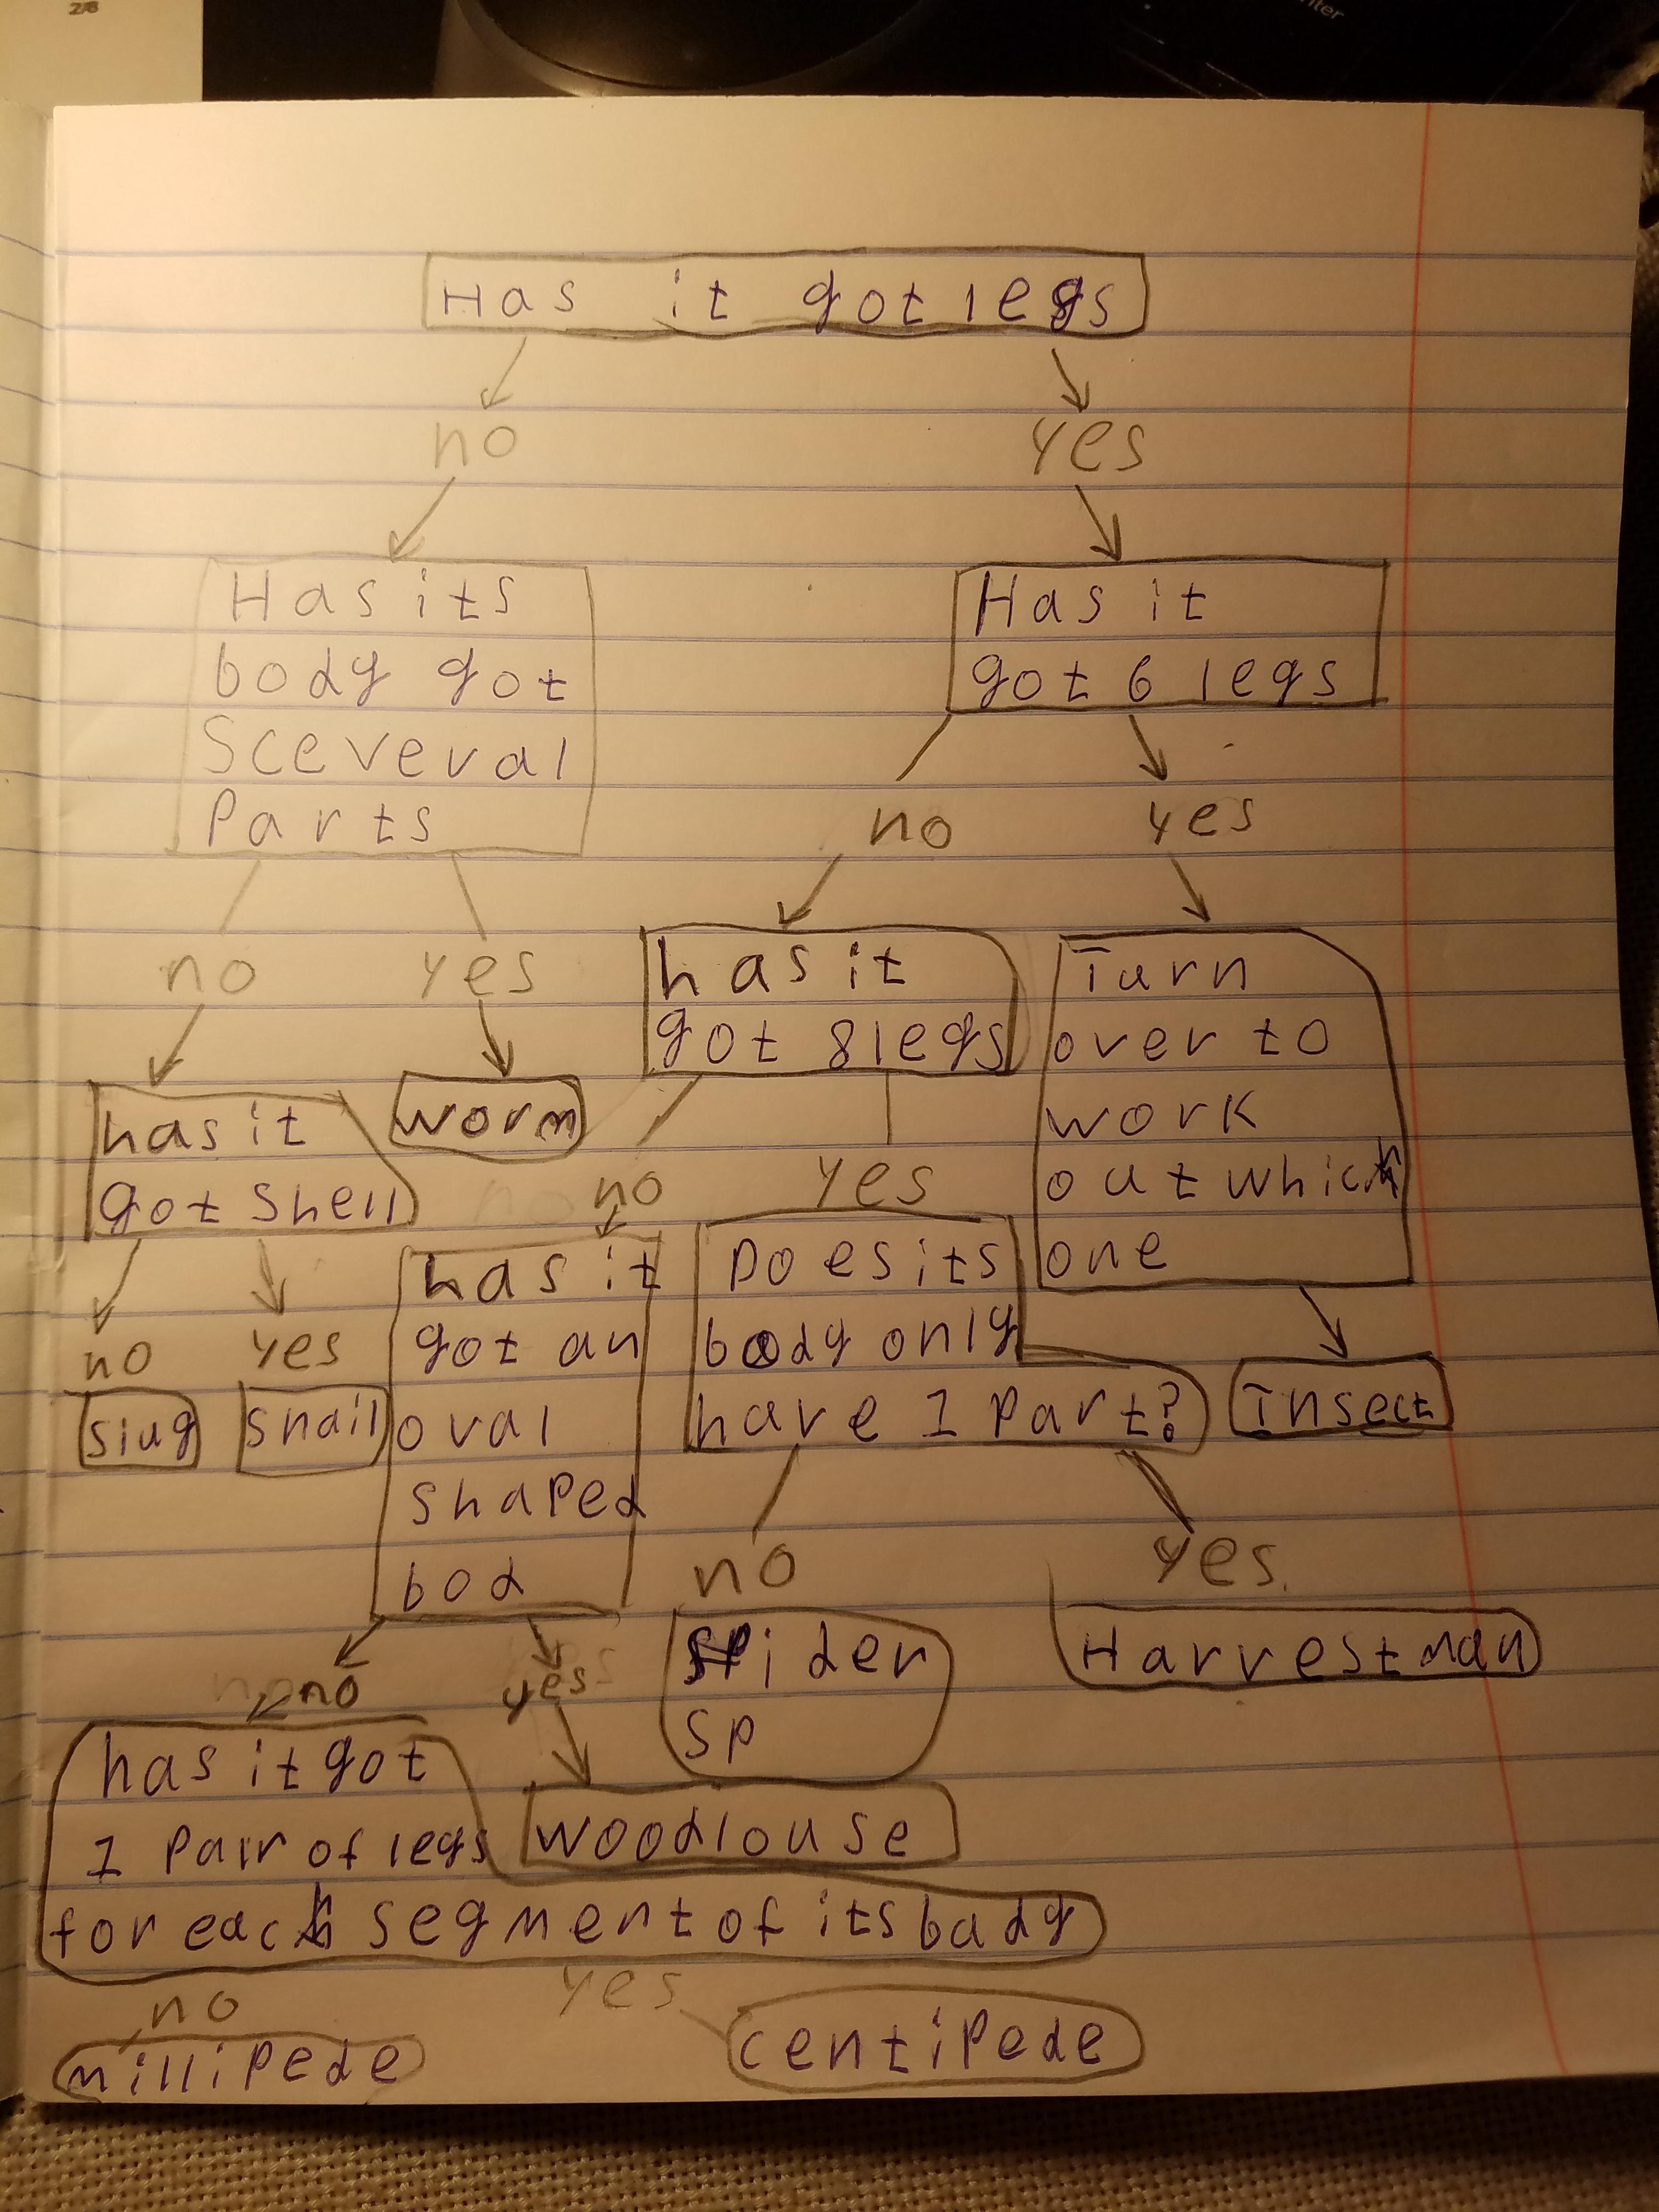 2/8
Has it got legs
no
yes
Has its
body got
Sceveral
Parts
Has it
got 6 legs
no
yes
no
yes
has it
got 8 legs
Turn
over to
work
out which
one
has it
got shell
worm
no
yes
no
yes
has it
got an
oval
shaped
bod
Does its
body only
have 1 Part?
Insect
slug
snail
no
yes
Spider
SP
Harvestman
no
yes
has it got
1 Pair of legs
for each segment of its bady
woodlouse
no
yes
millipede
centipede